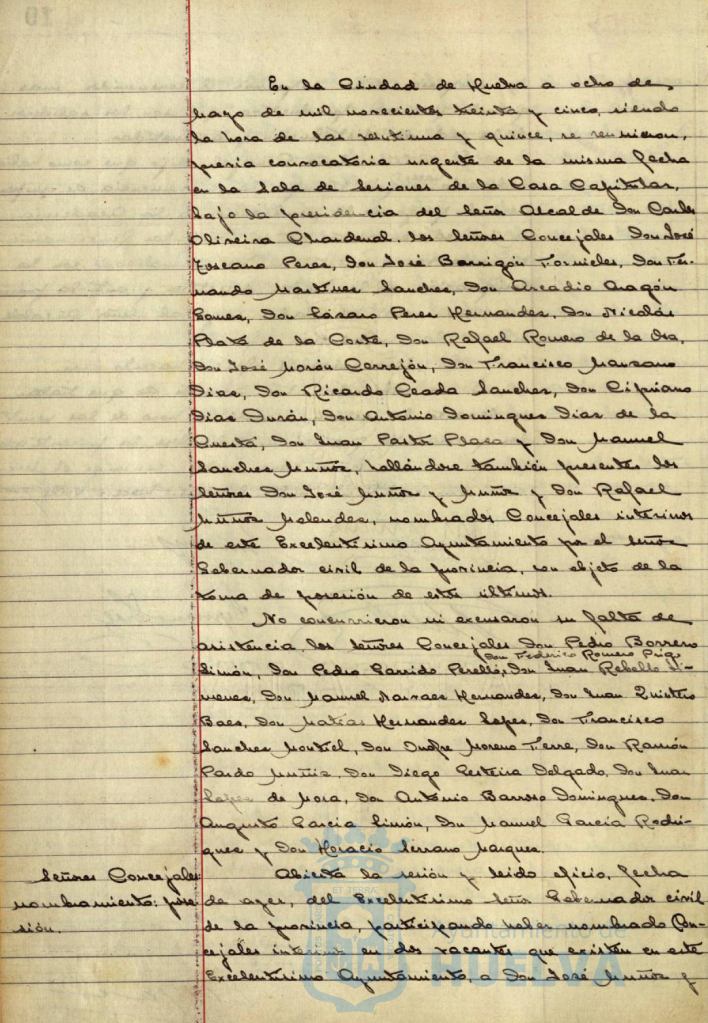 En la Ciudad de Huelva a ocho de
Mayo de mil novecientos treinta y cinco, siendo
la hora de las veintiuna y quince, se reunieron,
previa convocatoria urgente de la misma fecha
en la Sala de Sesiones de la Casa Capitular,
bajo la presidencia del Señor Alcalde Don Carlos
Oliveira Chardenal, los Señores Concejales Don José
Toscano Peres, Don José Barrigón Fornieles, Don Fer-
nando Martines Sanches, Don Arcadio Aragón
Gomes, Don Lázaro Peres Hernandes, Don Nicolás
Plata de la Corte, Don Rafael Romero de la Osa,
Don José Morón Correjón, Don Francisco Manzano
Dias, Don Ricardo Ceada Sanches, Don Cipriano
Dias Durán, Don Antonio Domingues Dias de la
Cuesta, Don Juan Pastor Plaza y Don Manuel
Sanches Muñoz, hallándose también presentes los
Señores Don José Muñoz y Muñoz y Don Rafael
Muñoz Melendes, nombrados Concejales interinos
de este Excelentísimo Ayuntamiento por el Señor
Gobernador civil de la provincia, con objeto de la
toma de posesión de estos últimos.
No concurrieron ni excusaron su falta de
asistencia, los Señores Concejales Don Pedro Borrero
Don Federico Romero Prigo
Limón, Don Pedro Garrido Perelló, Don Juan Rebollo Ji-
menes, Don Manuel Narvaes Hernandes, Don Juan Quintero
Baes, Don Matías Hernandes Lopes, Don Francisco
Sanches Montiel, Don Onofre Moreno Terre, Don Ramón
Pardo Muñiz, Don Diego Gesteira Delgado, Don Juan
Lopes de Mora, Don Antonio Barroso Domingues, Don
Augusto García Limón, Don Manuel García Rodrí-
gues y Don Horacio Serrano Marques.
Señores Concejales
nombramiento: pose
sión.
Abierta la sesión y leido oficio, fecha
de ayer, del Excelentísimo Señor Gobernador civil
de la provincia, participando haber nombrado Con-
cejales interinos en dos vacantes que existen en este
Excelentísimo Ayuntamiento, a Don José Muñoz y
HUELVA